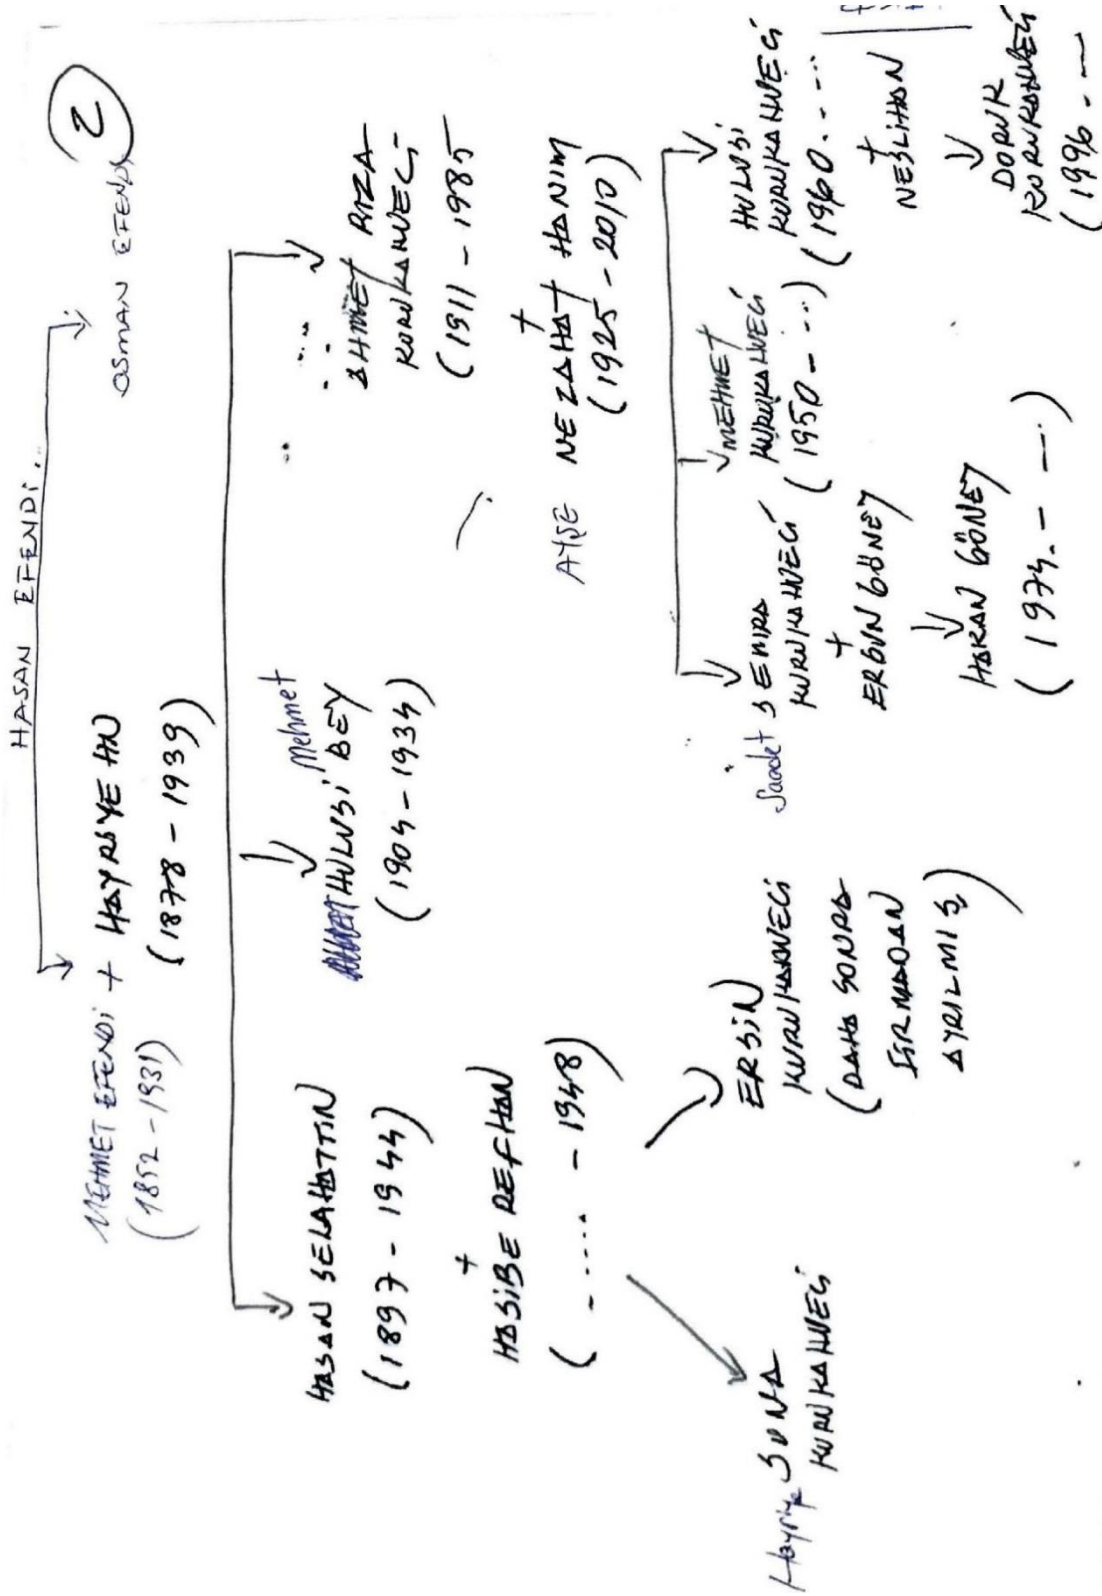 HASAN EFENDİ
2
OSMAN EFENDİ
MEHMET EFENDİ + HAYRİYE HN
(1852 - 1931)
(1878 - 1939)
HASAN SELAHATTİN
(1897 - 1944)
+
HASİBE REFHAN
(- ..... - 1948)
Mehmet
HULUSİ BEY
(1904 - 1934)
AHMET RIZA
KURUKAHVECİ
(1911 - 1985
+
AYŞE NEZAHAT HANIM
(1925 - 2010)
Hayriye SUNA
KURUKAHVECİ
ERSİN
KURUKAHVECİ
(DAHA SONRA
FİRMADAN
AYRILMIŞ)
Saadet SEMRA
KURUKAHVECİ
+
ERGUN GÖNEY
HAKAN GÖNEY
(1974. - --.)
MEHMET
KURUKAHVECİ
(1950 - ...)
HULUSİ
KURUKAHVECİ
(1960. - ...
+
NESLİHAN
DORUK
KURUKAHVECİ
(1996. - —